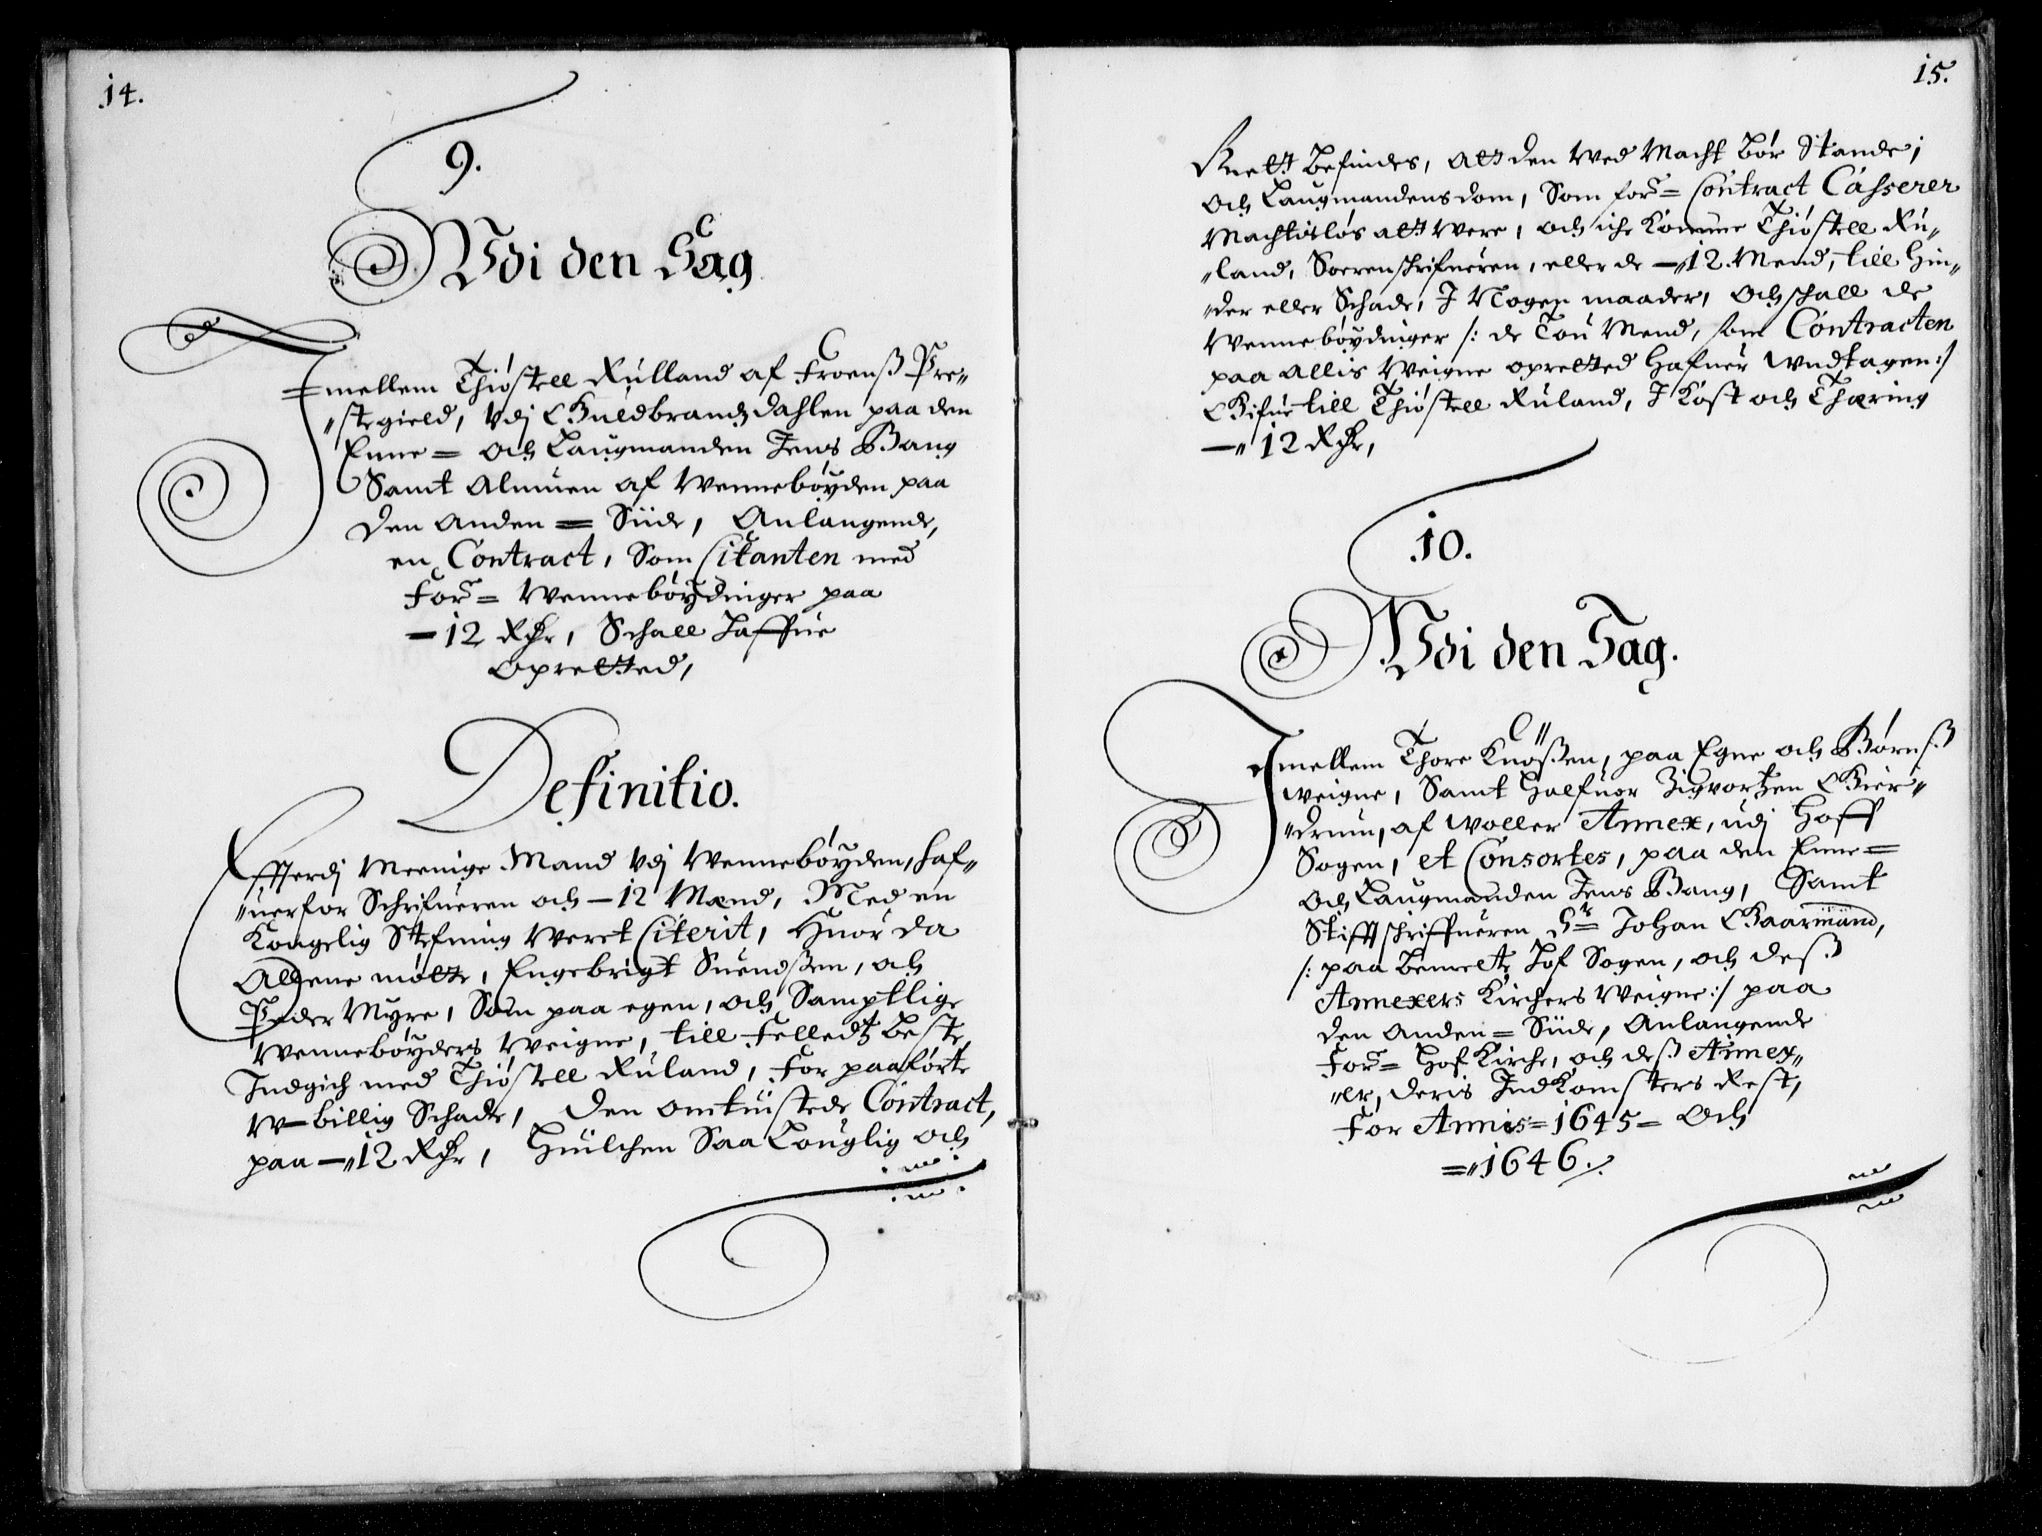 14.
9.
Vdi den Sag
Imellem Thiostell Rulland af Froenß Pre„
„stegield, Vdj Guldbrandtz dahlen paa den
Enne = och Laugmanden Jens Bang
Samt Almuen af Wennebøyden paa
den Anden = Siide, Anlangende,
en Contract, Som Citanten med
For: = Wennebøydinger paa
– 12 Rdr, Schall haffue
Opretted,
Definitio.
Efftterdj Meenige Mand Vdj Wennebøyden, haf„
„uer for Schrifueren och – 12 Mænd, Med en
Kongelig Stefning Weret Citerit, Huor da
Allene møtte, Engebrigt Suendßen, och
Peder Myre, Som paa egen, och Samptlige
Wennebøyders Weigne, till Felledtz Beste,
Indgich med Thiostell Ruland, For paaførte
W–billig Schade, Den omtuistede Contract,
paa –„12 Rdr, Huilchen Saa Louglig och
15.
Ruett befindes, att den Wed Macht bør Stande,
Och Laugmandens dom, Som for: = Contract Casserer
Machtisløs att Were, och iche komme Thiostell Ru„
„land, Sorenschrifueren, eller de –„12. Mend, till Hin„
„der eller Schade, I Nogen maader, Och schall de
Wennebøydinger /: de Tou Mend, som Contracten
paa Allis Weigne oprettted Hafuer Undtagen :/
Gifue till Thiostell Ruland, I Kost och Thæring
–„ 12 Rdr,
10.
Vdi den Sag.
Imellem Thore Knoßen, paa Egne och Børnß
Weigne, Samt Halfuor Sigvortzen Gier„
„drum, af Woller Annex, udj Hoff
Sogen, et Consortes, paa den Enne =
Och Laugmanden Jens Bang, Samt
Stifftschriffueren Sr: Johan Gaarmand,
/: paa bemelte Hof Sogen, och deß
Annexers Kirchers Weigne :/ paa
den Anden = Siide, Anlangende
For: = Hof Kirche, och deß Annex„
„er, deris Indkomsters Rest,
For Annis = 1645 = Och
=„1646./.